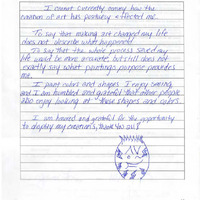 I cannot currently convey how the
creation of art has positively affected me.
To say that making art changed my life
does not describe what happened.
To say that the whole process saved my
life would be more accurate, but still does not
exactly say what paintings purpose provides
me.
I paint colors and shapes I enjoy seeing
and I am humbled and grateful that other people
also enjoy looking at these shapes and colors.
I am honored and grateful for the opportunity
to display my creations, thank you all!